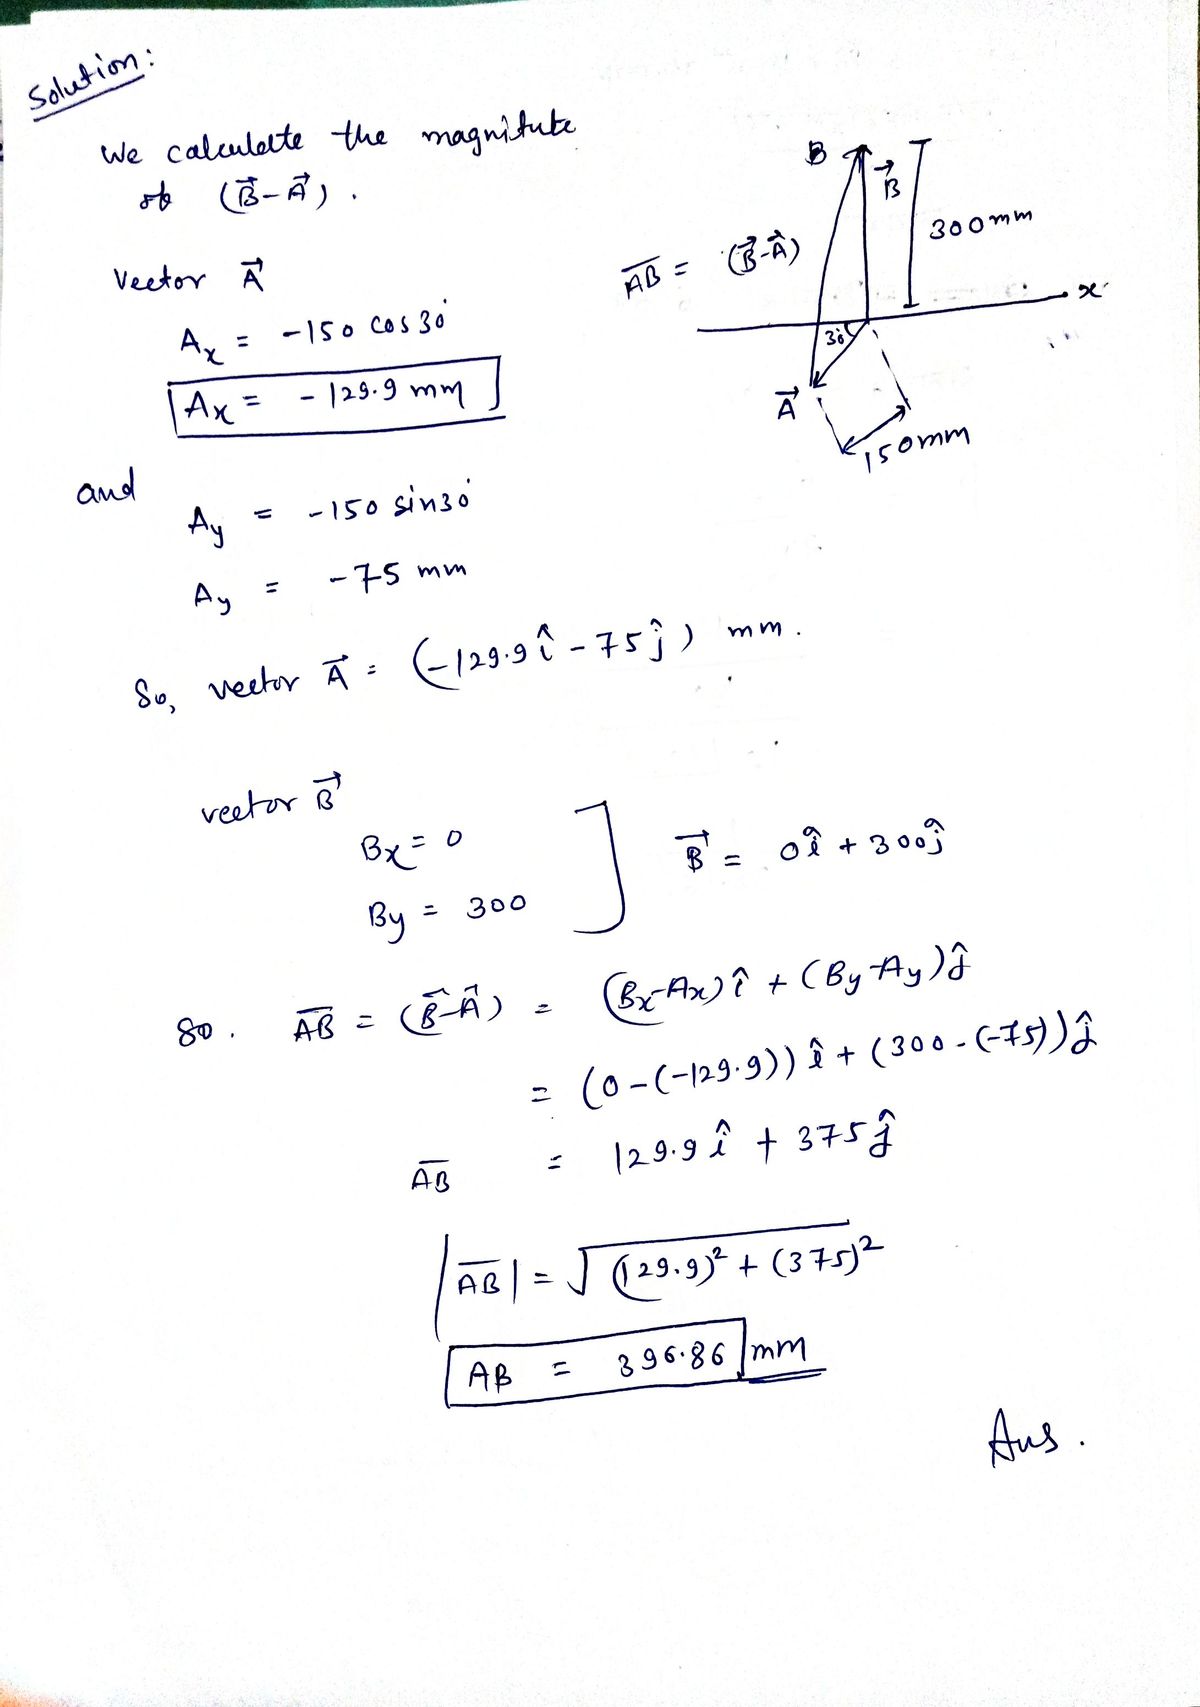 Solution:
We calculate the magnitute
of (B⃗-A⃗).
Vector A⃗
Ax = -150 cos30°
Ax = -129.9 mm
and
Ay = -150 sin30°
Ay = -75 mm
So, vector A⃗ = (-129.9î - 75ĵ) mm.
B
B⃗
300mm
AB = (B⃗-A⃗)
x
30°
A⃗
150mm
vector B⃗
Bx = 0
By = 300
B⃗ = 0î + 300ĵ
So. AB = (B⃗-A⃗) = (Bx-Ax)î + (By-Ay)ĵ
= (0-(-129.9))î + (300-(-75))ĵ
AB = 129.9î + 375ĵ
|AB| = √(129.9)² + (375)²
AB = 396.86 mm
Ans.